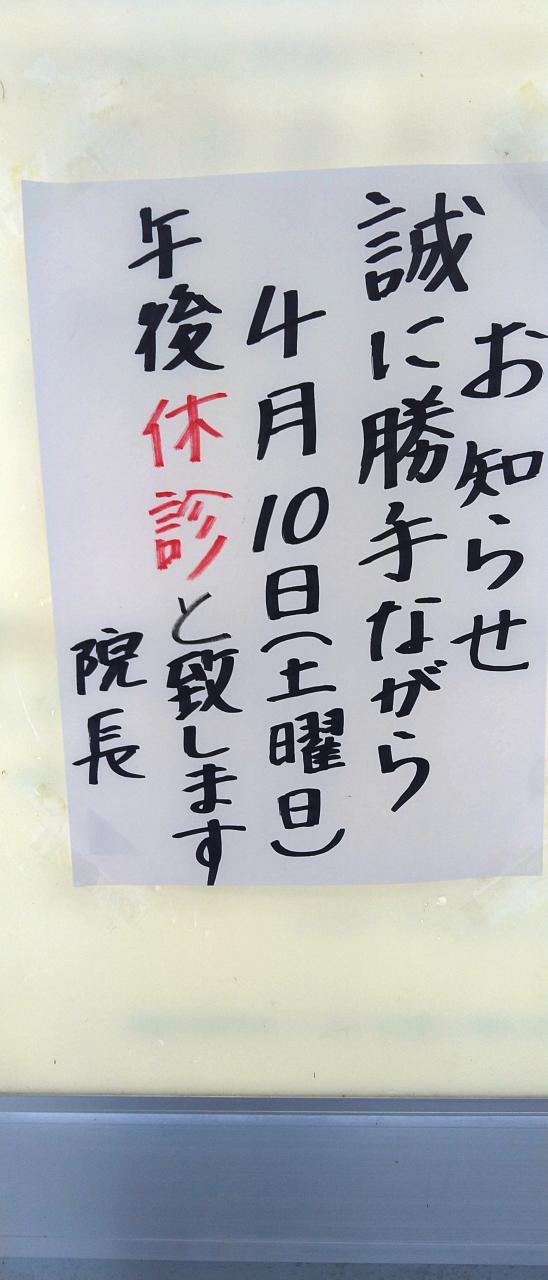 お知らせ
誠に勝手ながら
4月10日(土曜日)
午後休診と致します
院長